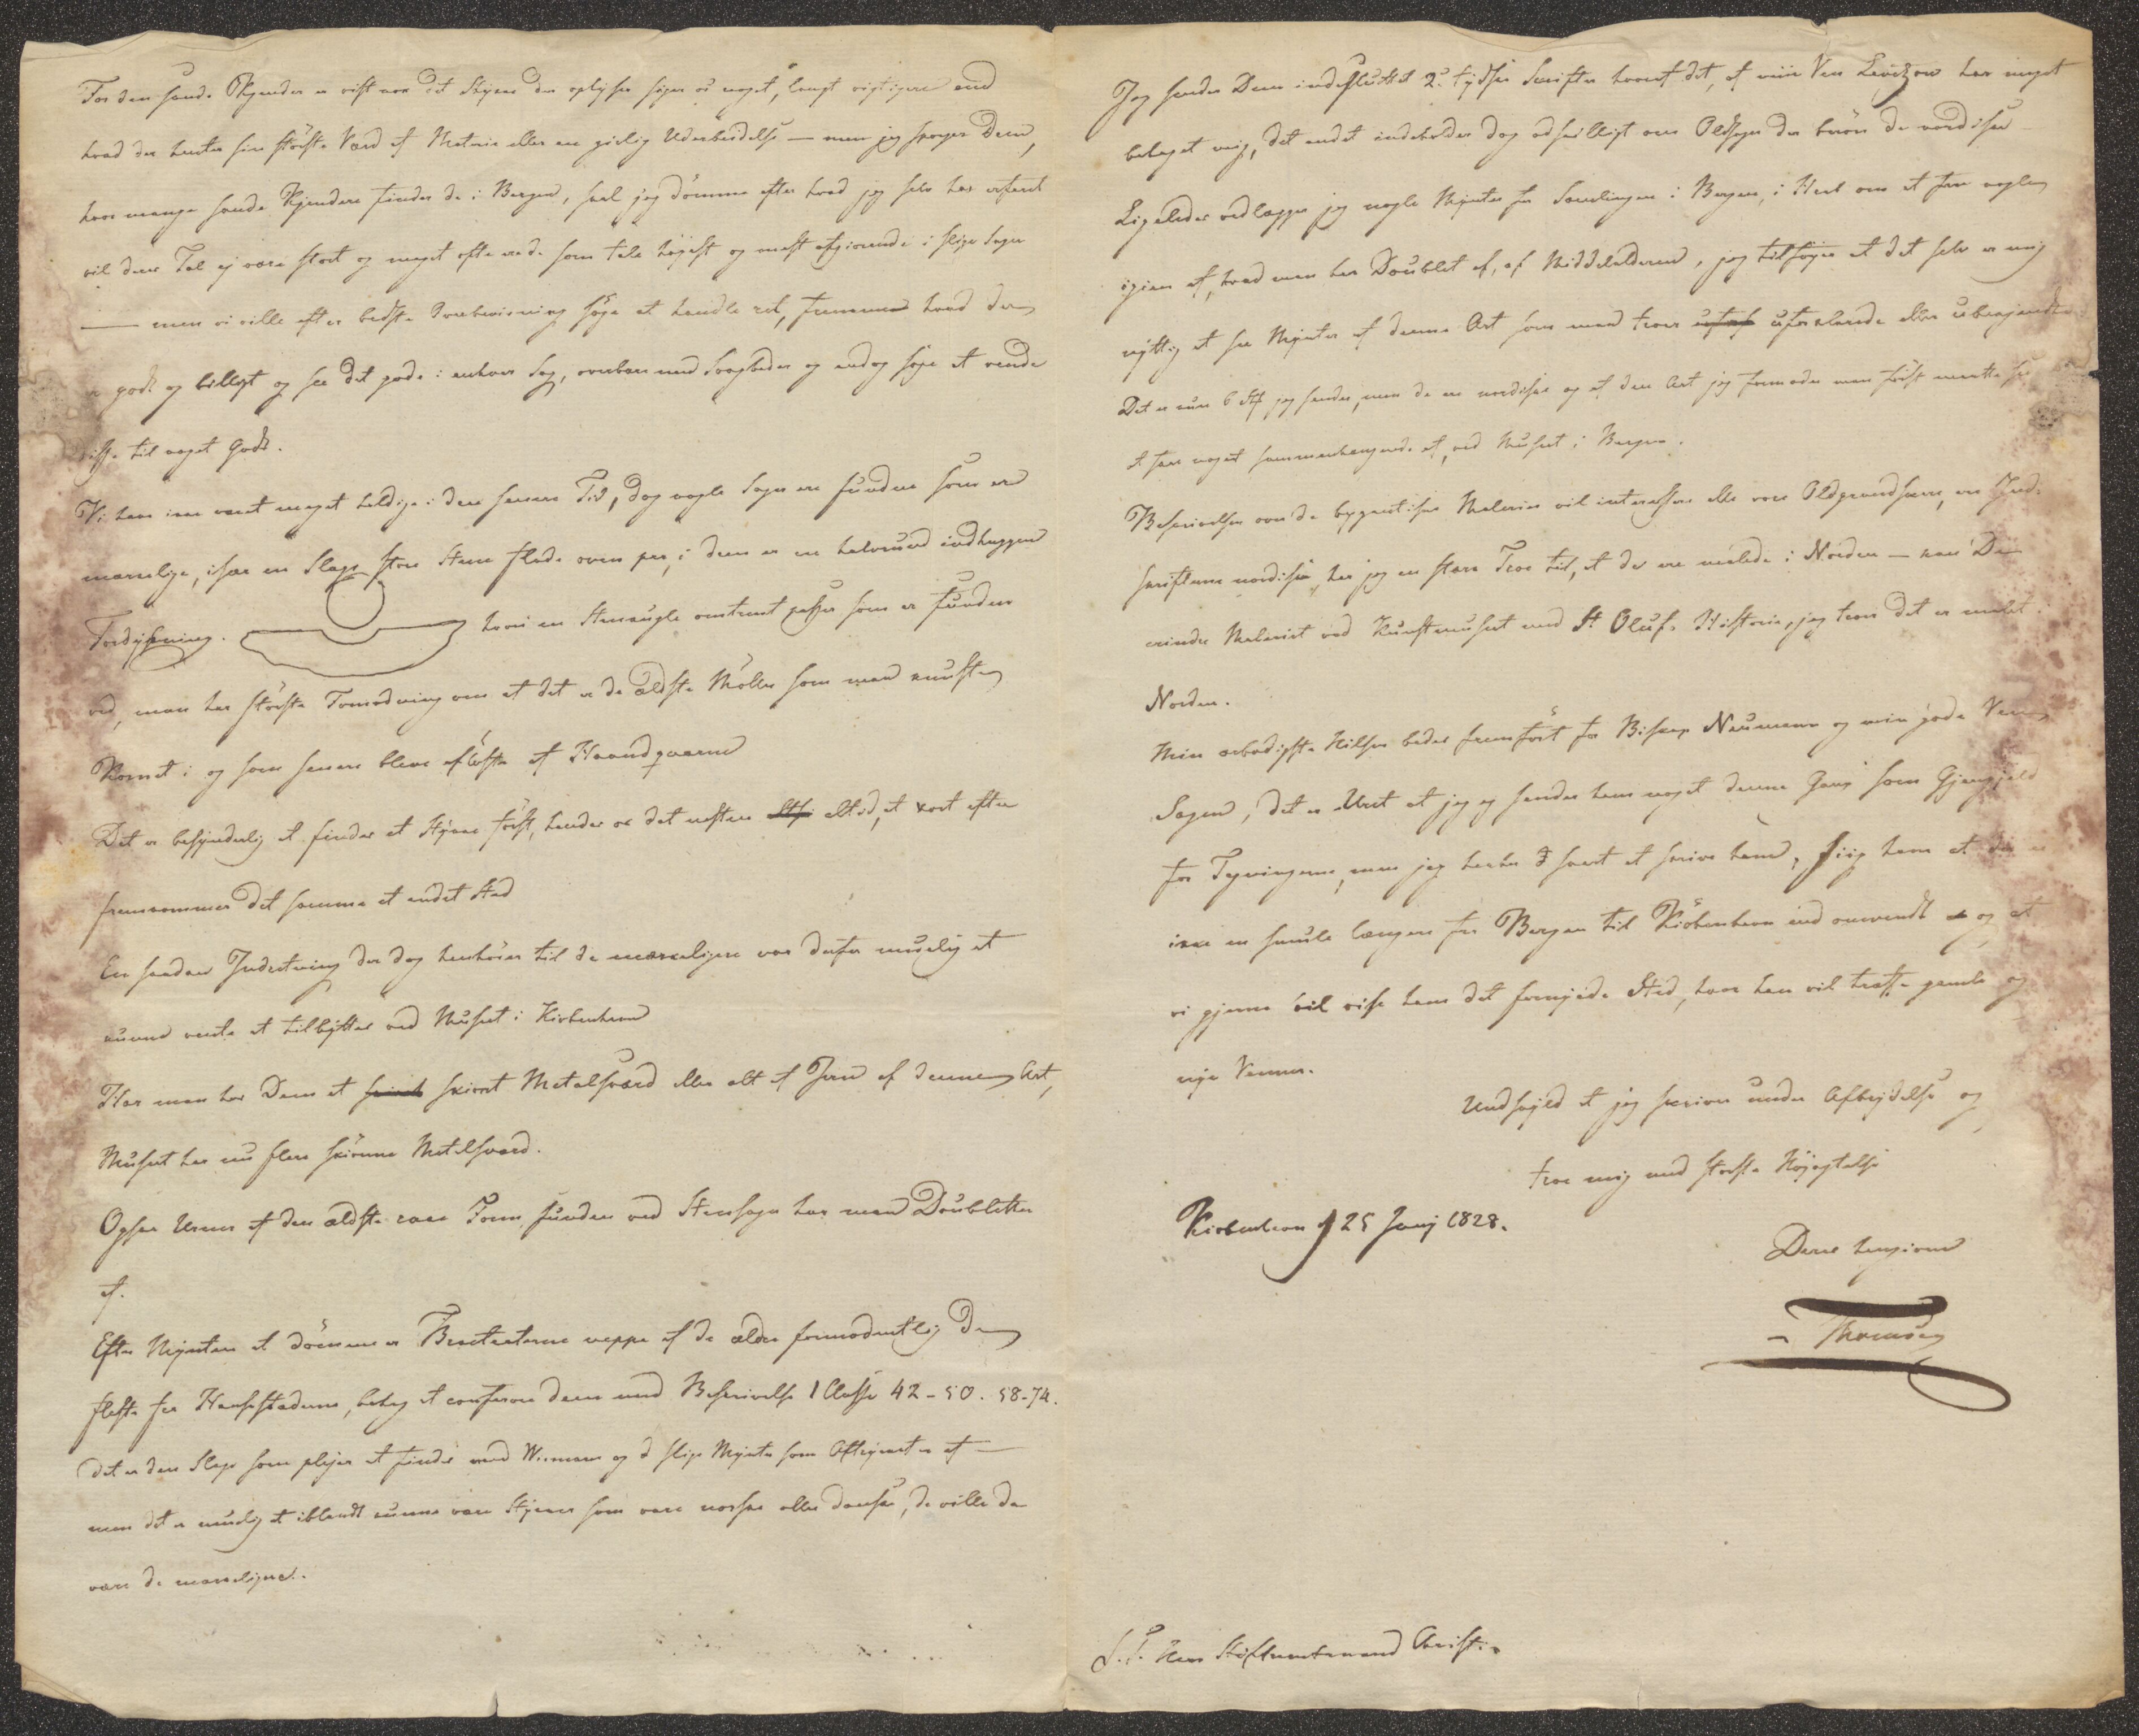 For den sande Kjender er vist nok det Stykke der oplyser siger os noget, langt vigtigere end
hvad der henter sin største Værd af Materie eller en zirlig Udarbeidelse — men jeg spørger Dem,
hvor mange sande Kjendere finder de i Bergen, skal jeg dömme efter hvad jeg selv har erfaret
vil deres Tal ej være stort og meget ofte ere de som tale höjest og mest afgiørende i slige Sager
— men vi ville efter bedste Overbeviisning söge at handle ret, fremme hvad der
er godt og billigt og see det gode i enhver Sag, overbære med Svagheder og endog söge at vende
disse til noget Godt.
Vi have været meget heldige i den senere Tid, dog nogle Sager ere fundne som ere
mærkelige, især en Slags store Stene flade oven paa, i dem er en halvrund indhuggen
Fordybning. hvori en Steenkugle omtrent passer som er funden
ved, man har störste Formodning om at det er de ældste Möller som man knuste
Kornet i og som senere bleve aflöste af Haandqværne
Det er besynderlig at finder et Stykke först, hender os det næsten altid, at kort efter
fremkommer det samme et andet Sted
En saadan Indretning der dog henhörer til de mærkeligere var derfor muelig at
kunne vente at tilbyttes ved Museet i Kiöbenhavn
Har man hos Dem et skiönt Metalsværd eller alt af Jern af denne Art,
Museet har nu flere skiönne Metalsværd.
Ogsaa Urner af den ældste rare Form funden ved Steensager har man Doubletter
af.
Efter Mynten at dömme er Bracteaterne neppe af de ældre formodentlig de
fleste fra Hansestæderne, behag at conferere dem med Beskrivelse 1 Classe 42-50. 58-74.
det er den Slags som plejer at findes med Wismars og d slige Mynter som Aftrykket er af —
men det er muelig at iblandt kunne være Stykker som vare norske eller danske, de ville da
være de mærkeligere.
Jeg sender Dem indsluttet 2de tydske Skrifter hvoraf det, af min Ven Levezow har meget
behaget mig, det andet indeholder dog adskilligt om Oldsager der berör de nordiske
Ligeledes vedlægger jeg nogle Mynter fra Samlingen i Bergen, i Haab om at faae nogle
igien af, hvad man har Doublet af, af Middelalderen, jeg tilföjer at det selv er mig
nyttig at see Mynter af denne Art som man troer uforklarede eller ubenyttede
Det er kun 6 St jeg sender, men de ere nordiske og af den Art jeg formoder man först maatte see
at faae noget sammenhængende af, ved Museet i Bergen.
Beskrivelsen over de byzantiske Malerier vil interessere alle vore Oldgrandskere, ere Ind-
skrifterne nordiske, har jeg en stærk Troe til, at de ere malede i Norden — kan De
erindre Maleriet ved Kunstmuseet med St Olufs Historie, jeg troer det er malet i
Norden.
Min ærbödigste Hilsen beder fremfört for Biskop Neumann og min gode Ven
Sagen, det er Uret at jeg ej sender ham noget denne Gang som Gjengjeld
for Tegningerne, men jeg har for svært at skrive ham, siig ham at der er
ikke en smule længere fra Bergen til Kiöbenhavn end omvendt og at
vi gjerne vil vise ham det fornyede Sted, hvor han vil træffe gamle og
nye Venner.
Undskyld at jeg skriver under Afbrydelse og
troe mig med störste Höjagtelse
Kiöbenhavn d 25 Junj 1828.
Deres hengivne
Thomsen
S. T. Herr Stiftamtmand Christie